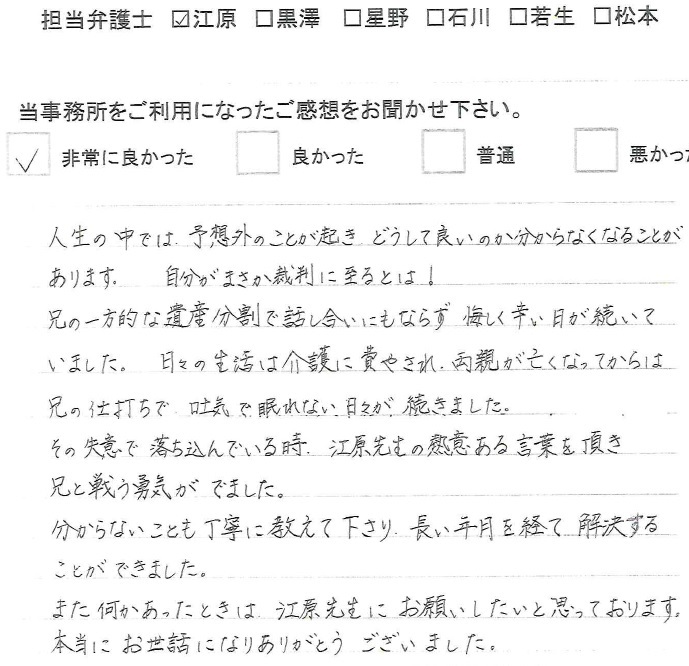 担当弁護士 ☑江原 □黒澤 □星野 □石川 □若生 □松本
当事務所をご利用になったご感想をお聞かせ下さい。
☑ 非常に良かった □ 良かった □ 普通 □ 悪かった
人生の中では、予想外のことが起き どうして良いのか分からなくなることが
あります。 自分がまさか裁判に至るとは!
兄の一方的な遺産分割で話し合いにもならず 悔しく辛い日が続いて
いました。 日々の生活は介護に費やされ、両親が亡くなってからは
兄の仕打ちで 吐気で眠れない日々が、続きました。
その失意で落ち込んでいる時、江原先生の熱意ある言葉を頂き
兄と戦う勇気が でました。
分からないことも丁寧に教えて下さり、長い年月を経て 解決する
ことができました。
また何かあったときは、江原先生に お願いしたいと思っております。
本当に お世話になりありがとう ございました。